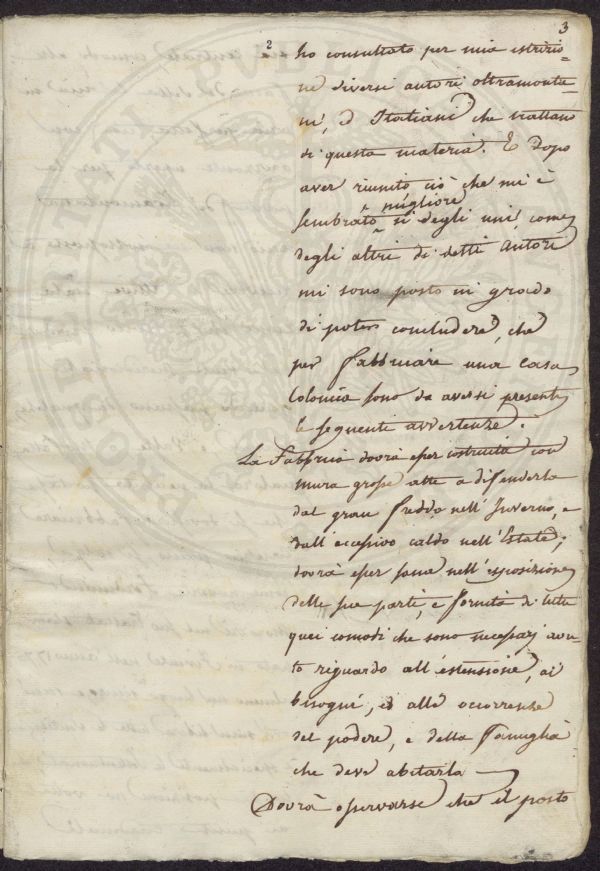 3
2
ho consultato per mia istruzio=
ne diversi autori oltramonta=
ni, ed Italiani che trattano
di questa materia. E dopo
aver riunito ciò che mi è
sembrato migliore si degli uni, come
degli altri di detti Autori
mi sono posto in grado
di poter concludere, che
per fabbricare una casa
Colonica sono da aversi presenti
le seguenti avvertenze.
La Fabbrica dovrà esser costruita con
mura grosse atte a difenderla
dal gran freddo nell'Inverno, e
dall'eccessivo caldo nell'Estate;
dovrà esser sana nell'esposizione
delle sue parti, e fornita di tutti
quei comodi che sono necessarj avu=
to riguardo all'estensione, ai
bisogni, ed alle occorrenze
del podere, e della Famiglia
che deve abitarla
Dovrà osservarse che il posto